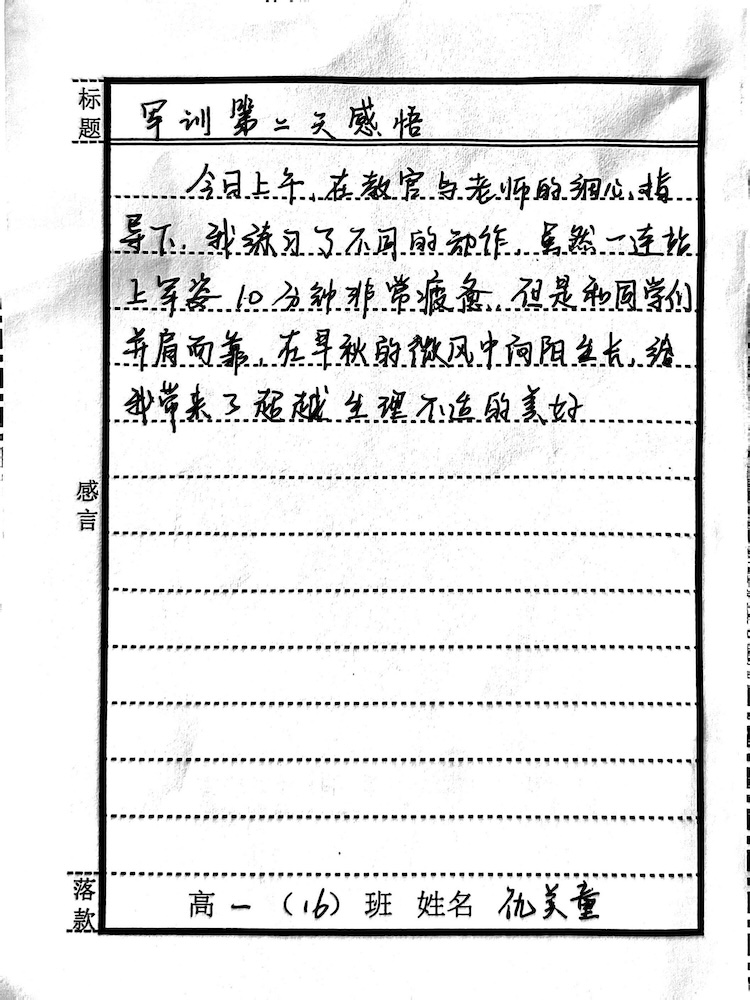 标题
军训第二天感悟
今日上午,在教官与老师的细心指
导下,我练习了不同的动作,虽然一连站
上军姿10分钟非常疲惫,但是和同学们
并肩而靠,在早秋的微风中向阳生长,给
我带来了超越生理不适的美好
感言
落款
高一(16)班 姓名 仇美童